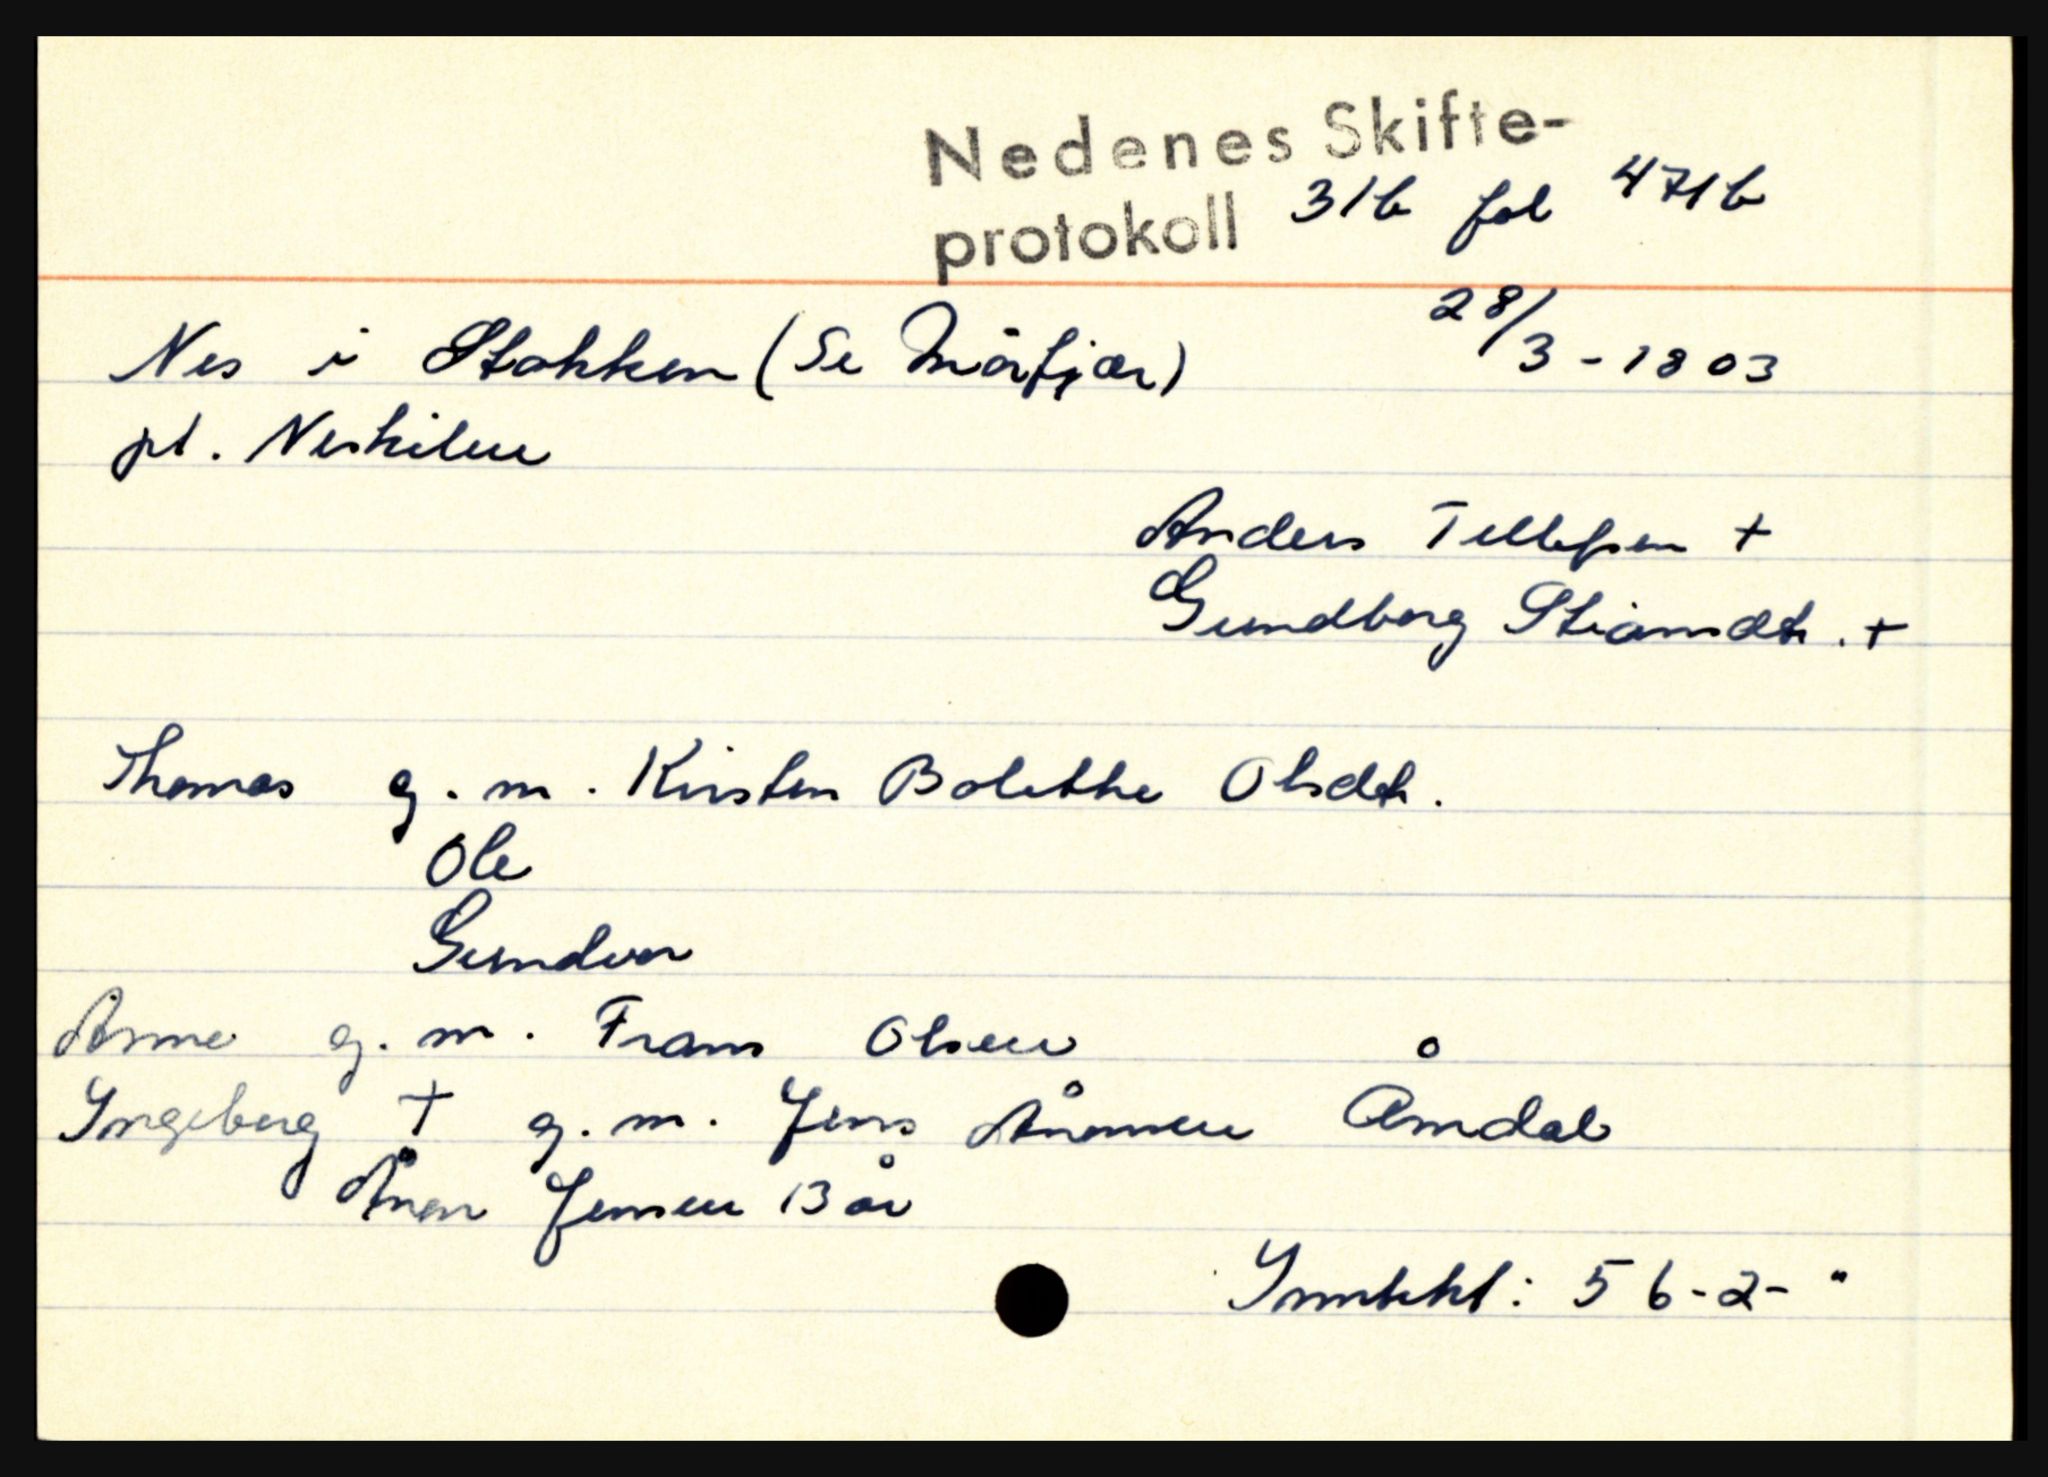 Nedenes Skifte-
protokoll 31b fol 471b
28/3 - 1803
Nes i Stokken (Se Mörfjær)
pl. Neskilen
Anders Tellefsen +
Gundborg Stiansdtr. +
Thomas g. m. Kirsten Bolethe Olsdtr.
Ole
Gundvor
Anne g. m. Frans Olsen
Yngeborg + g. m. Jens Ånonsen Åmdal
Ånon Jensen 13 år
Ynntekt: 56-2- "